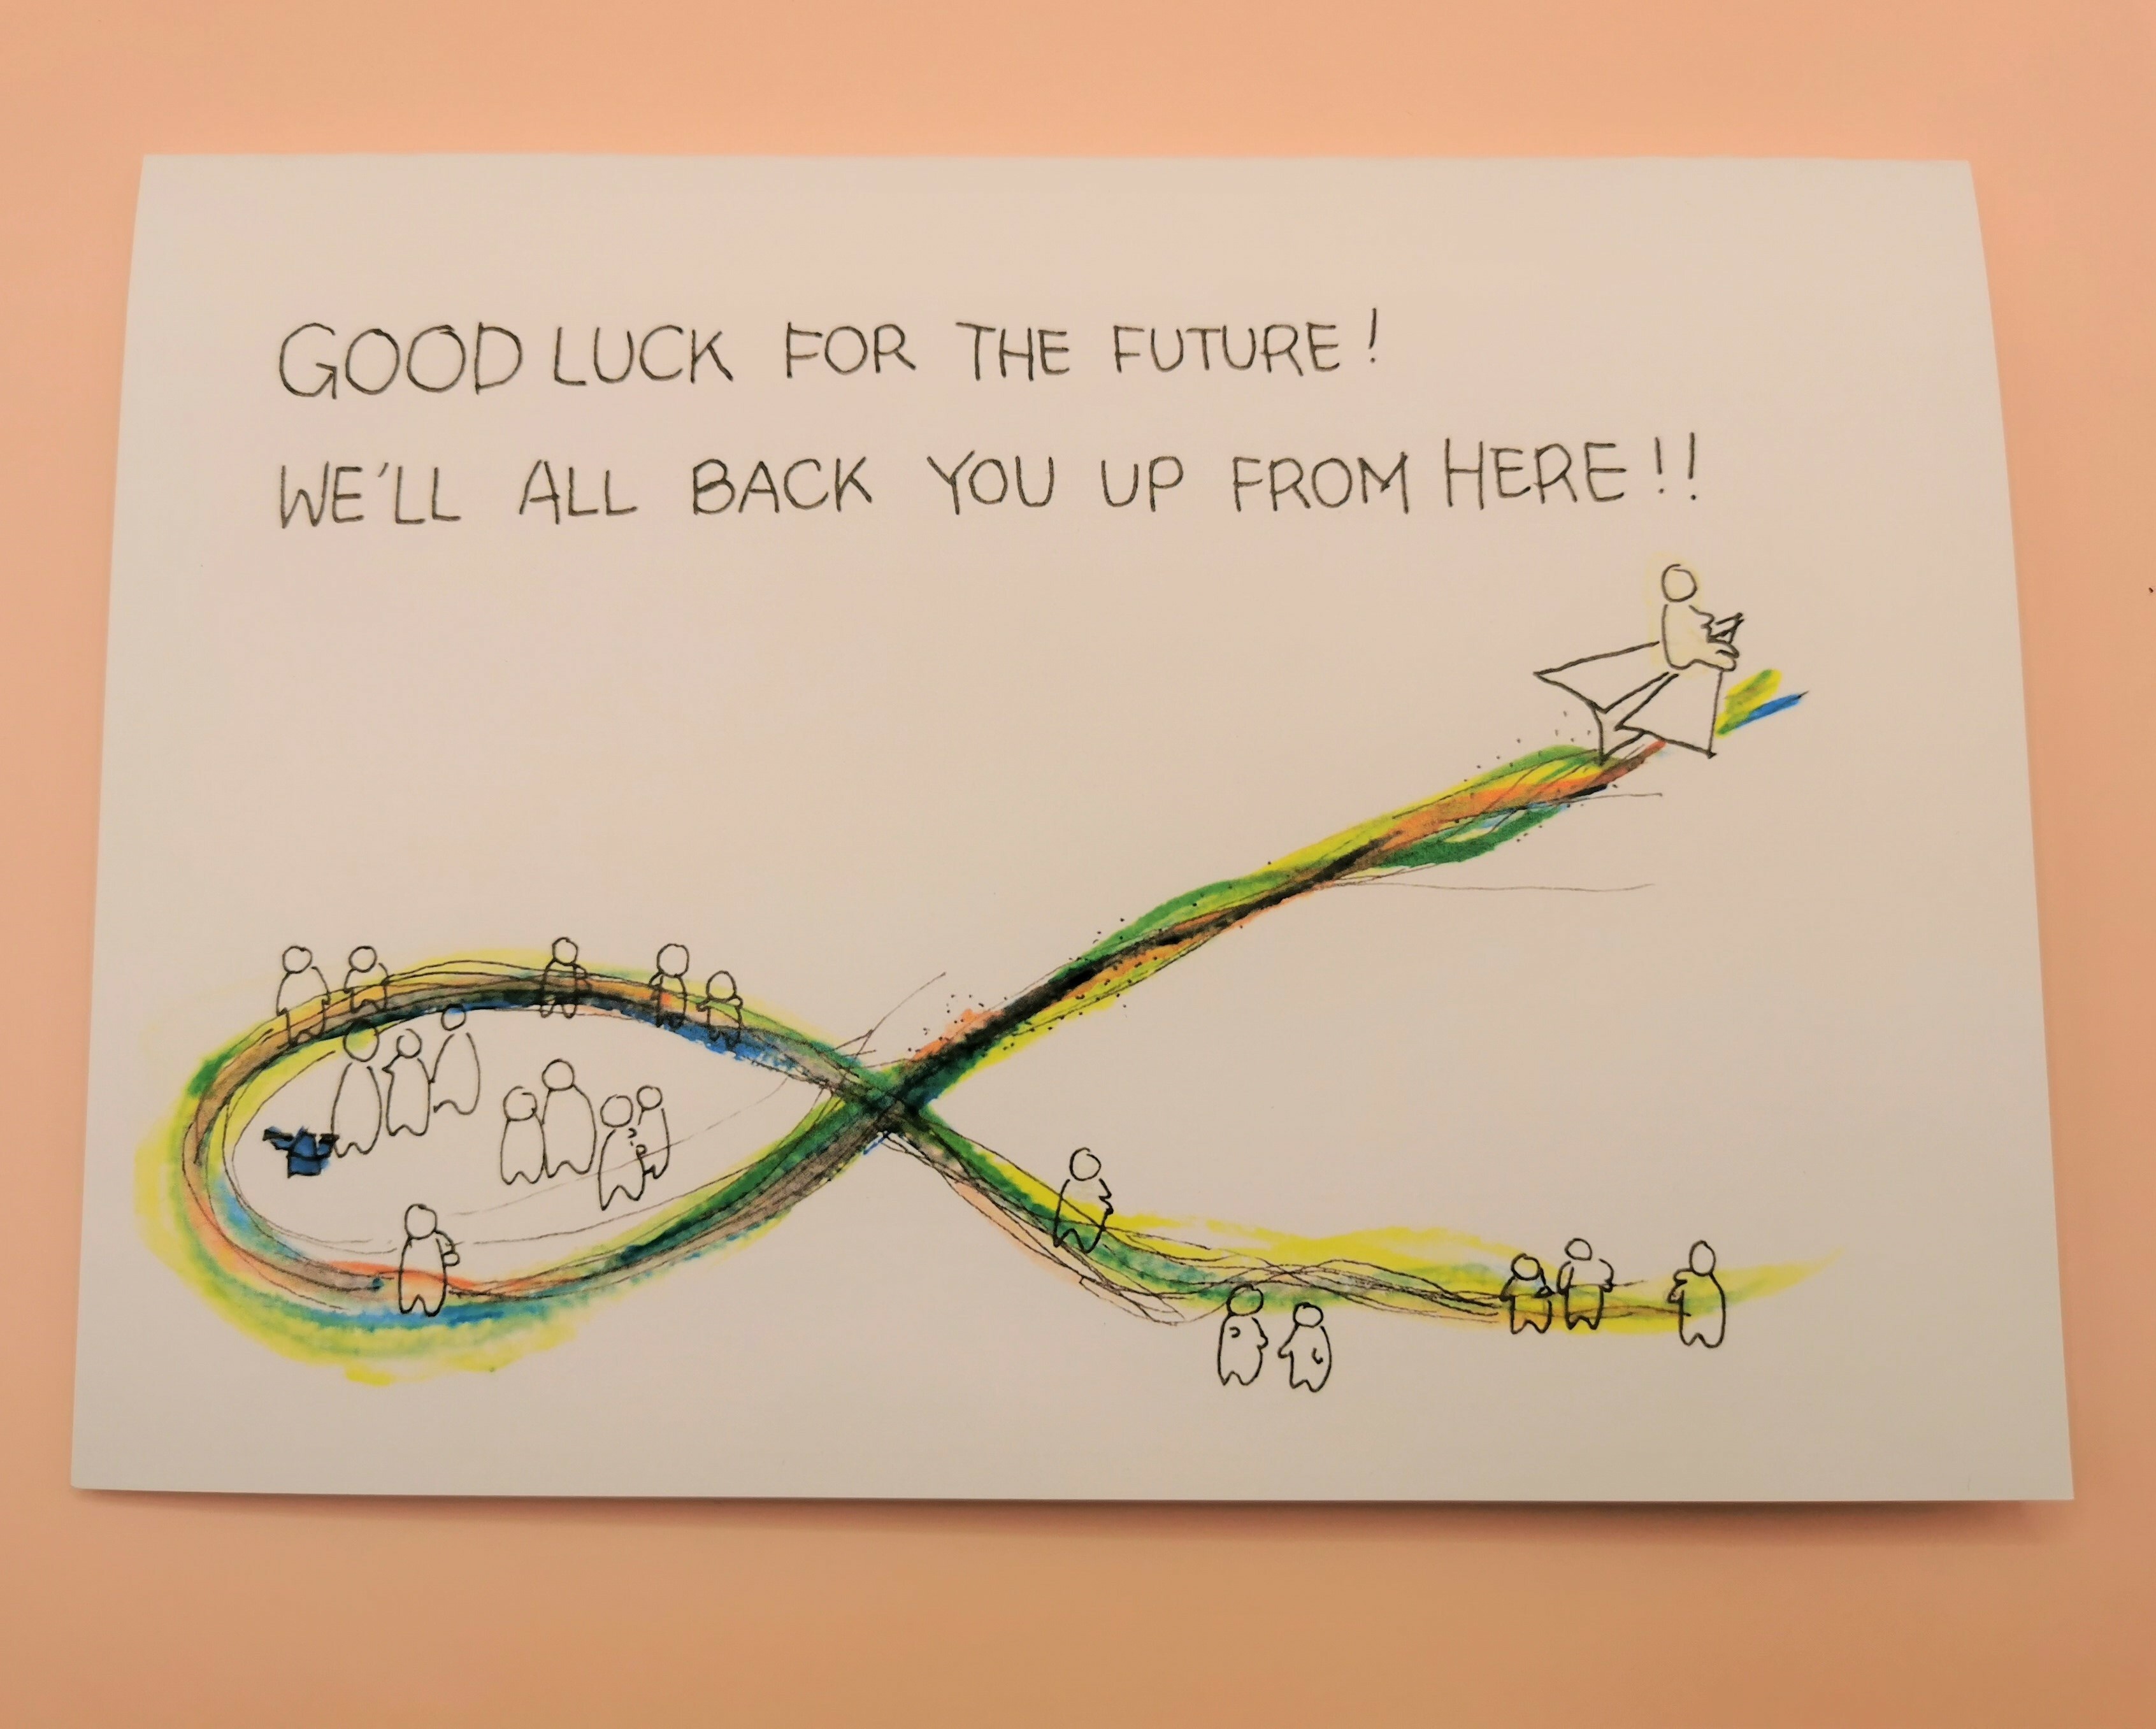 GOOD LUCK FOR THE FUTURE!
WE'LL ALL BACK YOU UP FROM HERE!!